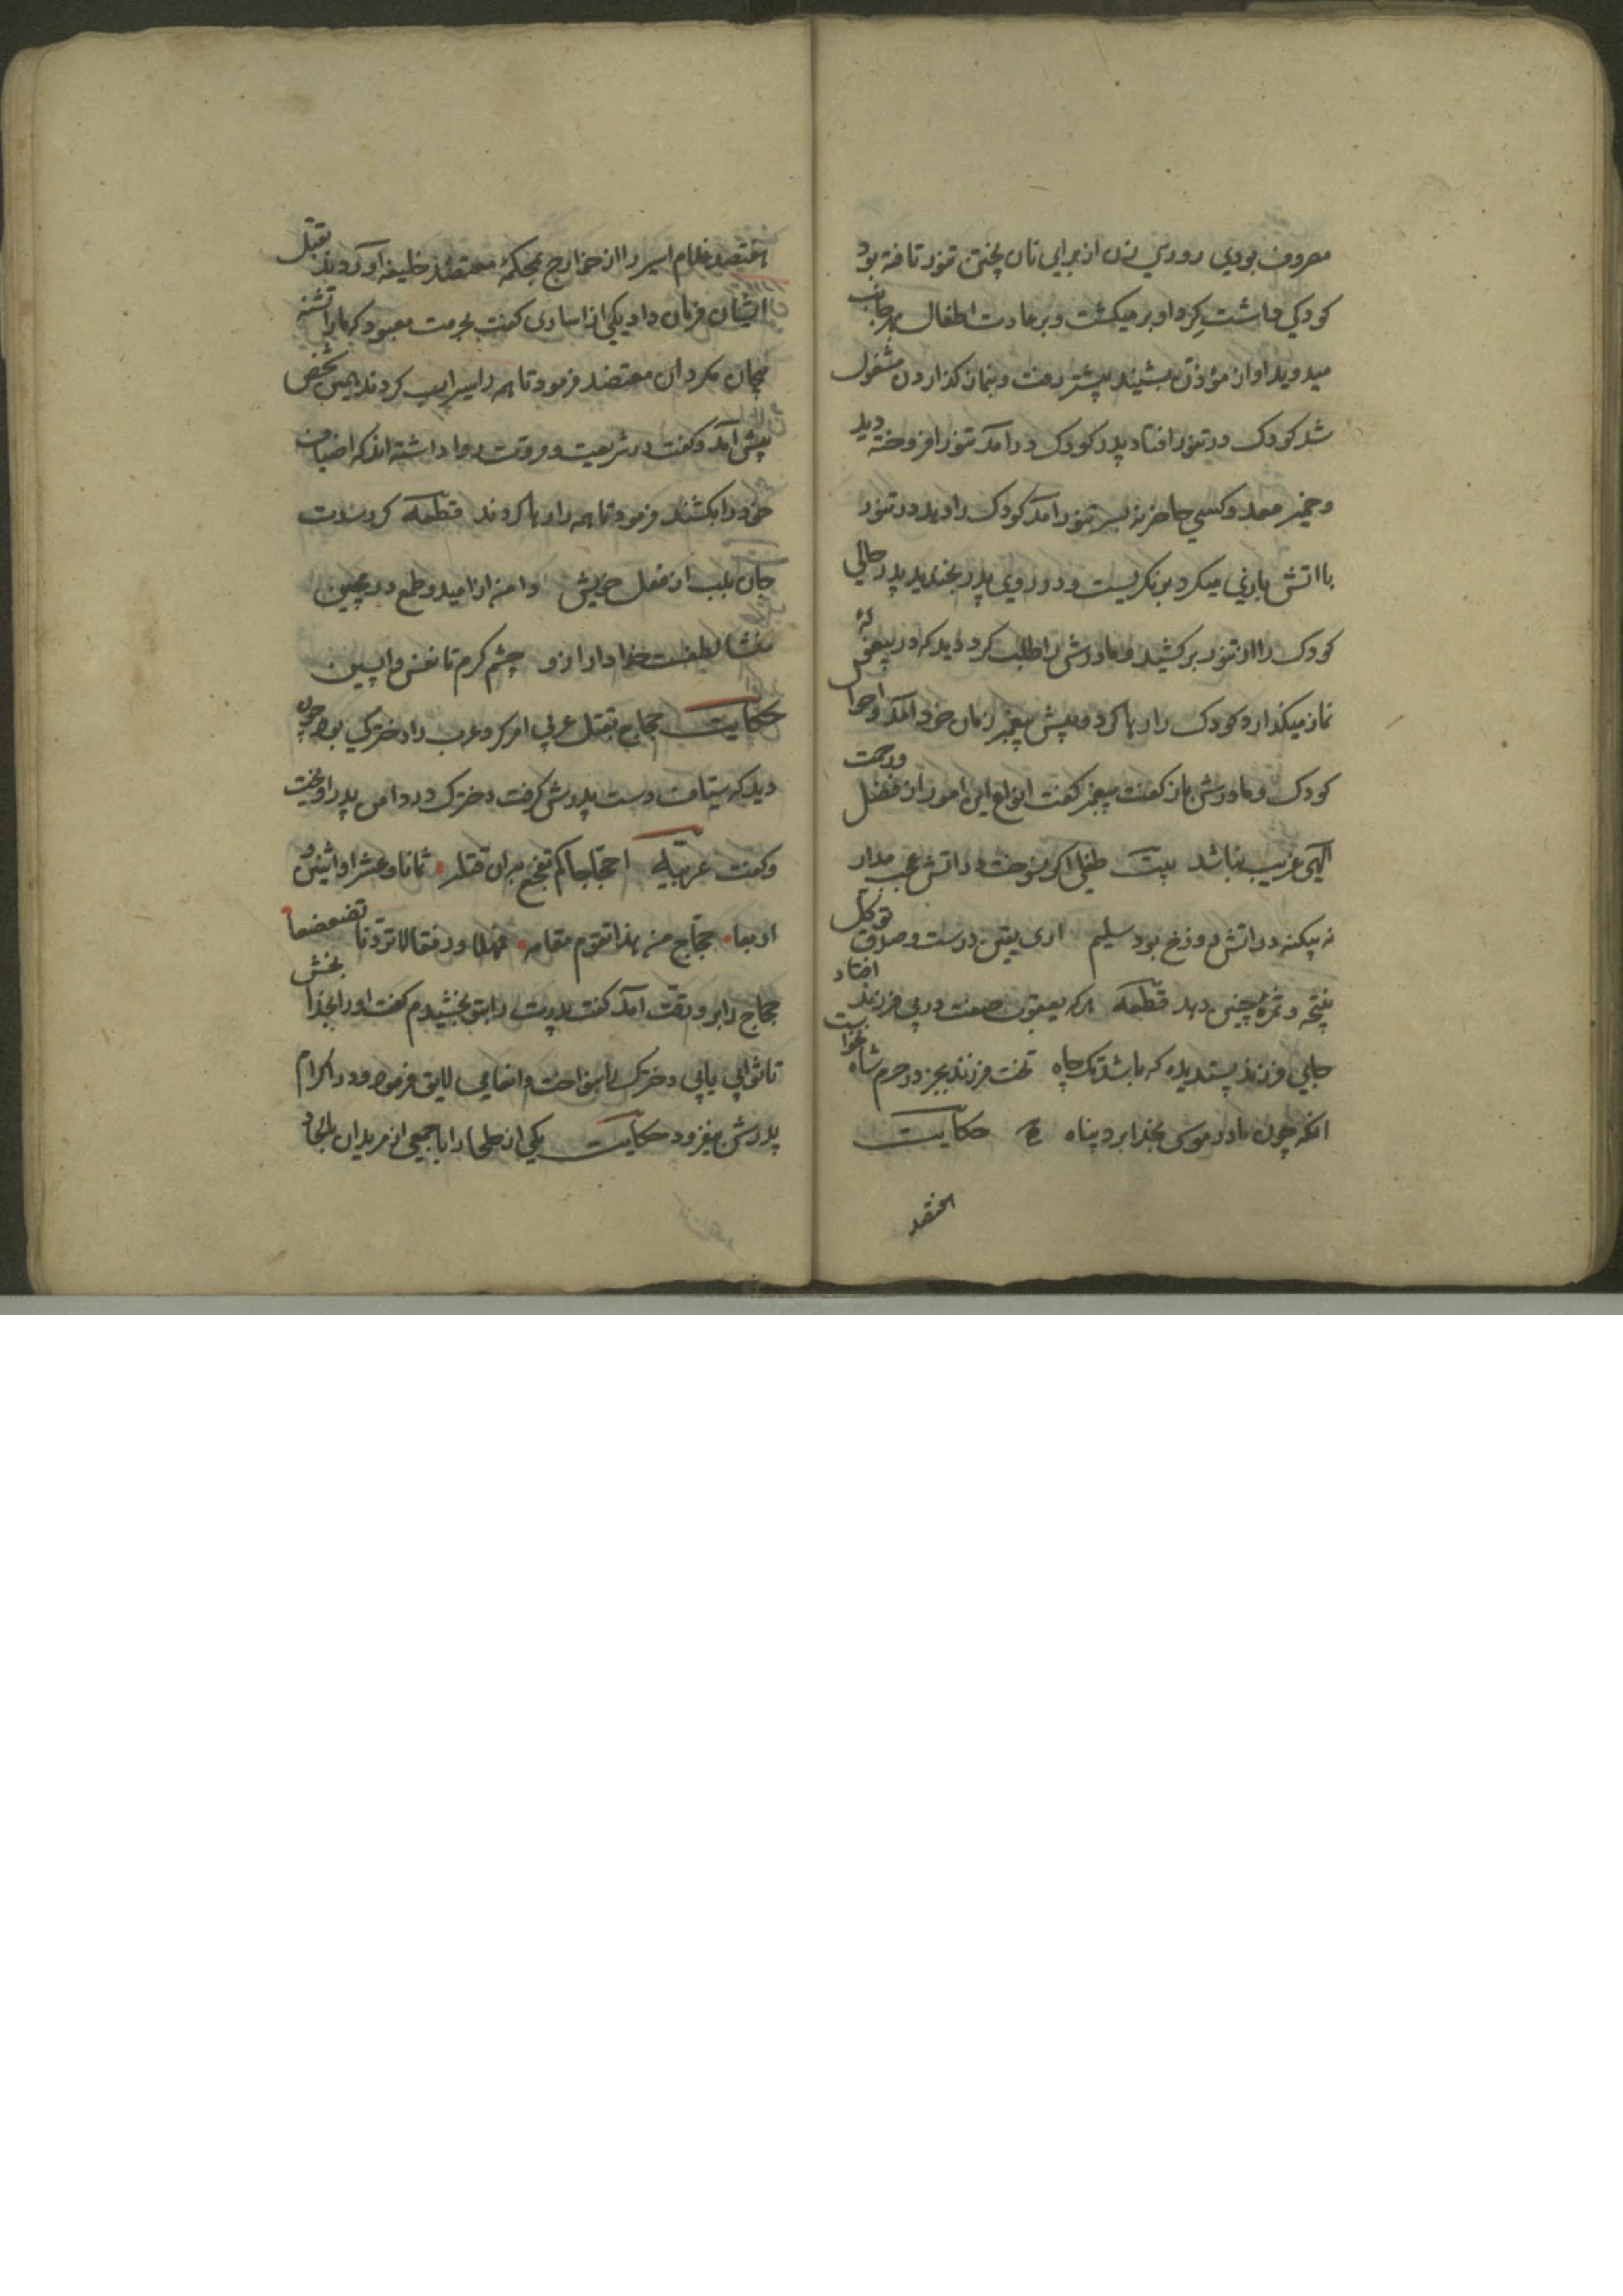 معروف بودی روزی زن از برای نان پختن تنور تافته بود
کودکی داشت کرد او بر میکشت و بر عادت اطفال بهر جانب
میدوید اواز مؤذن بشنید پیشتر رفت و بنماز کذاردن مشغول
شد کودک در تنور افتاد پدر کودک درامد تنور افروخته دید
و خمیر معد و کسی حاضر نه بسر تنور امد کودک را دید در تنور
با اتش بازی میکرد بنکریست و در روی پدر بخندید پدر حالی
کودک را از تنور برکشید و مادرش را طلب کرد دید که در پیغوله
نماز میکذارد کودک را رها کرد و پیش پیغمبر زمان خود امد و احوال
کودک و مادرش باز کفت پیغمبر کفت انواع این امور از فضل و رحمت
الهی غریب نباشد بیت طفلی اکر نسوخت در اتش عجب مدار
نه بیکنه در اتش دوزخ بود سلیم اری یقین درست و صدق توکل
نتیجه و ثمره چنین دهد قطعه هرکه یعقوب صفت در پی فرزند افتاد
جای فرزند پسندیده که باشد تک چاه تخت فرزند بجز در حرم شاه نخواست
انکه چون مادر موسی بخدا برد پناه حکایت
المعتضد
المعتضد غلام اسیر را از خوارج بمحکمه معتضد خلیفه اوردند بقتل
ایشان فرمان داد یکی از اساری کفت بحرمت معبود که مارا تشنه
بیجان مکردان معتضد فرمود تا همه را سیراب کردند همین شخص
پیش امد و کفت در شریعت و مروت روا داشته اند که اضیاف
خود را بکشند فرمود تا همه را رها کردند قطعه کر رسدت
جان بلب از فعل خویش دامنه از امید و طمع در مچین
لطفست خدا دار ازو چشم کرم تا نفس واپسین
حکایت حجاج بقتل عربی امر کرد عرب را دخترکی بود چون
دید که سیاف دست پدرش کرفت دخترک در دامن پدر اویخت
و کفت عربیه احجاجا کم تفجع بران قتله ثمانا وعشرا واثنین و
اربعا حجاج منه بهذا تقوم مقامه فمهلا ورفقا لا تزدنا تضعضعا
حجاج را برو رقت امد کفت پدرت را بتو بخشیدم کفت او را بخدا بخش
تا ثوابی یابی دخترک را بنواخت و انعامی لایق فرمود و در اکرام
پدرش بیفزود حکایت یکی از صلحا را با جمعی از مریدان بلنجا